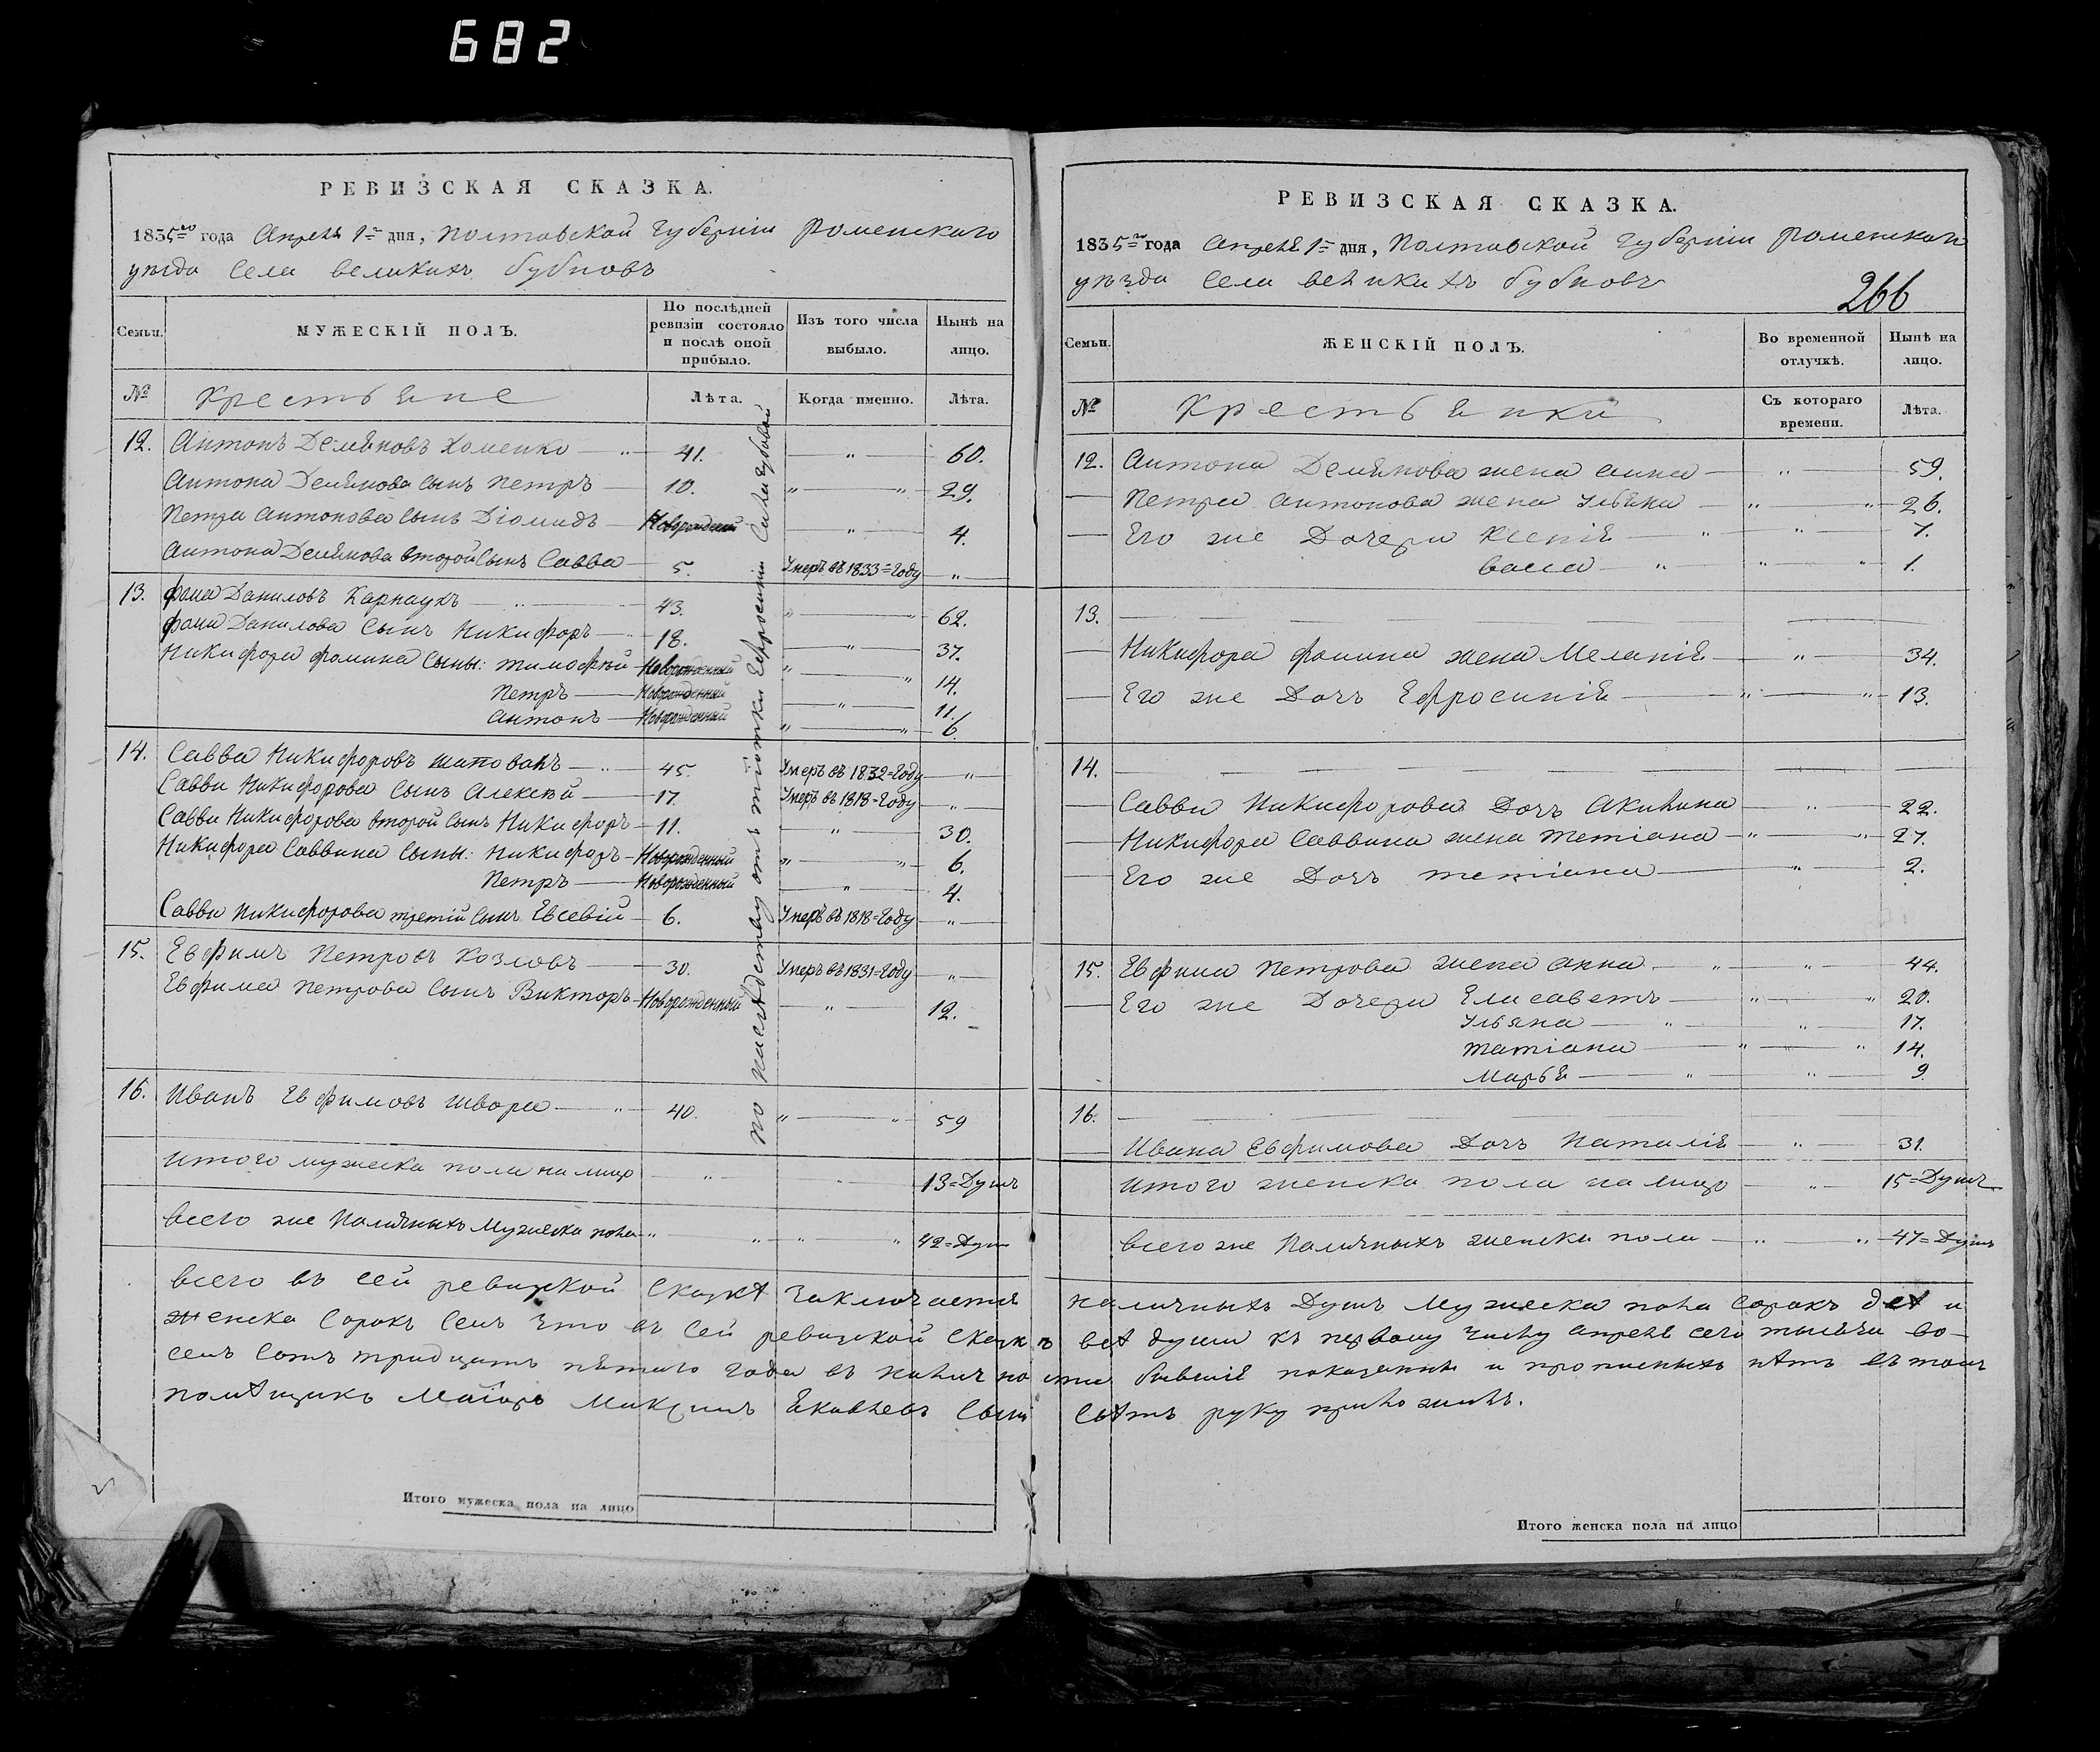 682
РЕВИЗСКАЯ СКАЗКА.
1835го года Апреля 1го дня, Полтавской губернiи Роменскаго
уѣзда Села великихъ бубновъ
Семьи.
МУЖЕСКІЙ ПОЛЪ.
По послѣдней ревизіи состояло и послѣ оной прибыло.
Изъ того числа выбыло.
Нынѣ на лицо.
№ Крестьяне Лѣта. Когда именно. Лѣта.
12. Антонъ Демяновъ Хоменко — 41. — 60.
Антона Демянова Сынъ Петръ — 10. — 29.
Петра Антонова Сынъ Дiомидъ — Новорожденный — 4.
Антона Демянова второй Сынъ Савва — 5. Умеръ въ 1833=году — „
13. Фома Даниловъ Карнаухъ — 43. — 62.
Фомы Данилова Сынъ Никифоръ — 18. — 37.
Никифора Фомина Сыны: Тимофѣй — Новорожденный — 14.
Петръ — Новорожденный — 11.
Антонъ — Новорожденный — 6.
14. Савва Никифоровъ Шаповалъ — 45. Умеръ въ 1832=году — „
Саввы Никифорова Сынъ Алексѣй — 17. Умеръ въ 1818=году — „
Саввы Никифорова второй Сынъ Никифоръ — 11. — 30.
Никифора Саввина Сыны: Никифоръ — Новорожденный — 6.
Петръ — Новорожденный — 4.
Саввы Никифорова третiй Сынъ Евсевiй — 6. Умеръ въ 1818=году — „
15. Евфимъ Петровъ Козловъ — 30. Умеръ въ 1831=году — „
Евфима Петрова Сынъ Викторъ — Новорожденный — 12.
16. Иванъ Евфимовъ Швора — 40. — 59
по наслѣдству отъ тіотки Ефросинiи
Итого мужеска пола на лицо — 13=Душъ
Всего же Наличныхъ Мужеска пола — 42=Душ
Всего въ сей ревизской Сказкѣ Заключается
женска Сорокъ Семь Что въ Сей ревизской Сказкѣ
семъ Сотъ тридцать пятаго года въ налично
помѣщикъ Маiоръ Максимъ Яковлевъ Сынъ
Итого мужеска пола на лицо
РЕВИЗСКАЯ СКАЗКА.
1835го года Апреля 1го дня, Полтавской губернiи Роменскаго
уѣзда Села великихъ бубновъ
266
Семьи.
ЖЕНСКІЙ ПОЛЪ.
Во временной отлучкѣ.
Нынѣ на лицо.
№ Крестьянки Съ котораго времени. Лѣта.
12. Антона Демянова жена Анна — 59.
Петра Антонова жена Ульяна — 26.
Его же Дочери Ксенiя — 7.
Васса — 1.
13.
Никифора Фомина жена Меланiя — 34.
Его же Дочь Ефросинiя — 13.
14.
Саввы Никифорова Дочь Акилина — 22.
Никифора Саввина жена Татiана — 27.
Его же Дочь татiана — 2.
15. Евфима Петрова жена Анна — 44.
Его же Дочери Елисаветъ — 20.
Ульяна — 17.
Татiана — 14.
Марья — 9.
16.
Ивана Евфимова Дочь Наталiя — 31.
Итого женска пола на лицо — 15=Душъ
Всего же Наличныхъ женска пола — 47=Душъ
наличныхъ Душъ Мужеска пола Сорокъ двѣ и
всѣ души къ первому числу Апреля сего тысяча во-
сти бывшiя показанны и прописныхъ нѣтъ въ томъ
руку приложилъ.
Итого женска пола на лицо